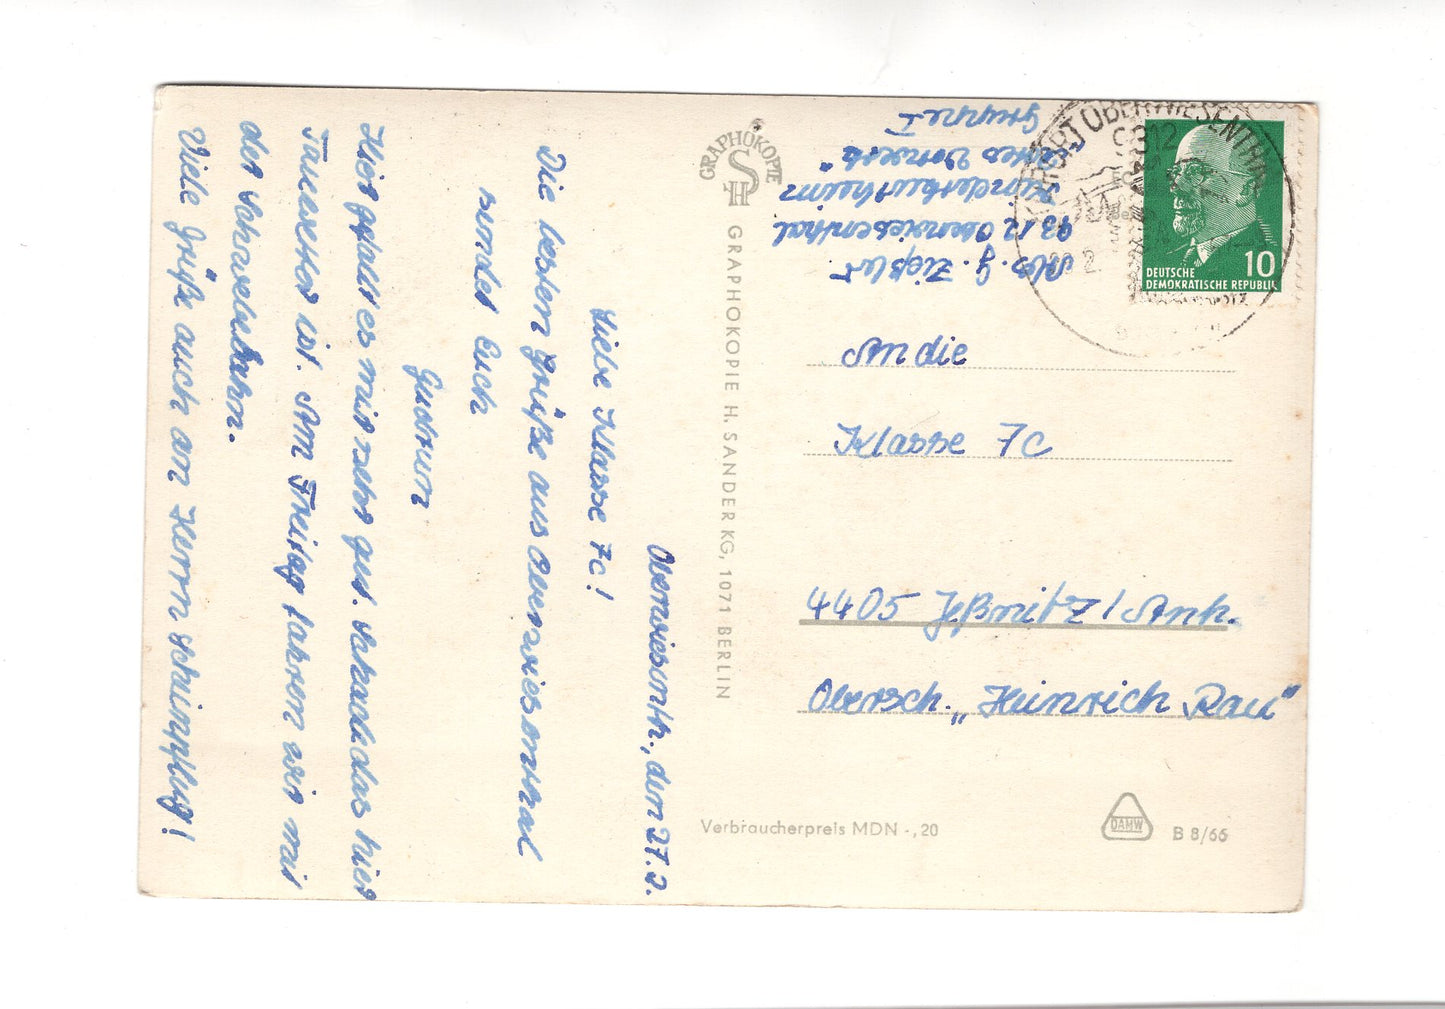 Oberwiesenth., den 27.2.
Liebe Klasse 7c!
Die besten Grüße aus Oberwiesenthal
sendet Euch
Gudrun
Hier gefällt es mir sehr gut. Schade das hier
Tauwetter ist. Am Freitag fahren wir mit
der Schwebebahn.
Viele Grüße auch an Herrn Schimpflug!
GRAPHOKOPIE
SH
GRAPHOKOPIE H. SANDER KG, 1071 BERLIN
Abs. G. Zießler
9312 Oberwiesenthal
Kinderkurheim
Gruppe I
KURORT OBERWIESENTHAL
9312
DEUTSCHE
DEMOKRATISCHE REPUBLIK
10
An die
Klasse 7c
4405 Jeßnitz / Anh.
Obersch. „Heinrich Rau“
Verbraucherpreis MDN -,20
DAMW
B 8/66